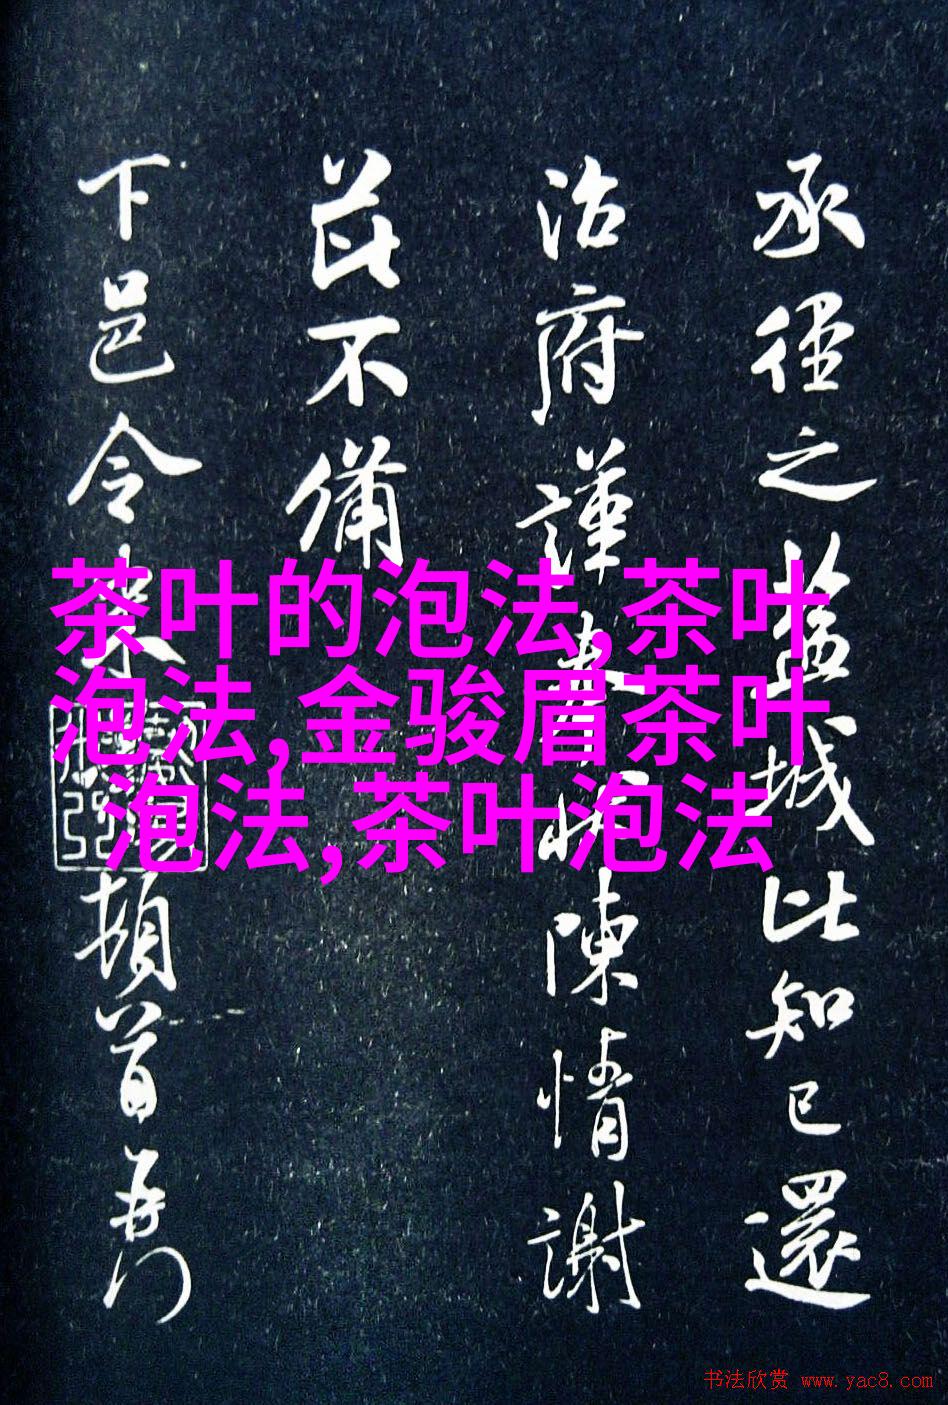 茶叶的泡法,茶叶
泡法,金骏眉茶叶
泡法,茶叶泡法
承徑之城比知已還
治府謹陳情謝
不備
下邑令頓首再拜
书法欣赏 www.yac8.com